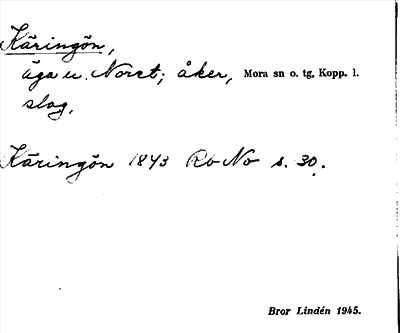 Käringön,
äga u. Noret; åker, Mora sn o. tg, Kopp. l.
slog.
Käringön 1843 Rb No s. 30.
Bror Lindén 1945.